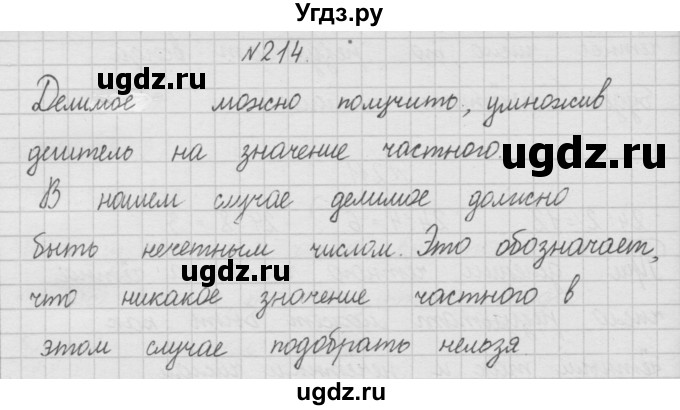 Угдз.ру
№214.
ugdz.ru
Делимое можно получить, умножив
делитель на значение частного.
ugdz.ru
В нашем случае делимое должно
быть нечетным числом. Это обозначает,
ugdz.ru
что никакое значение частного в
этом случае подобрать нельзя
ugdz.ru